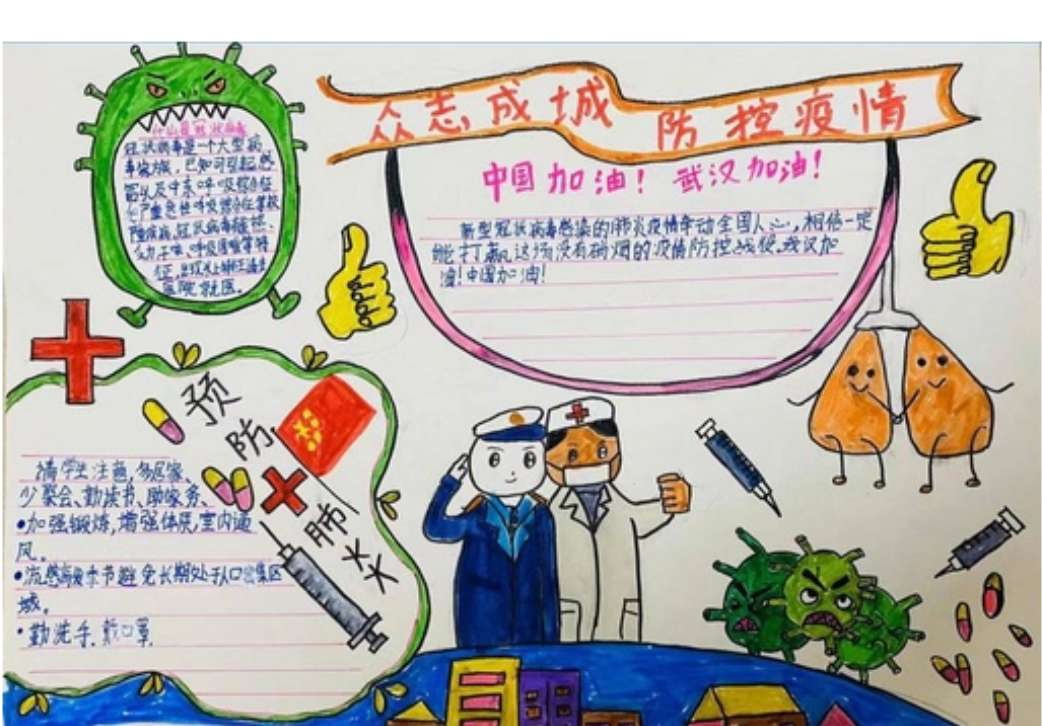 众志成城 防控疫情
中国加油！武汉加油！
新型冠状病毒感染的肺炎疫情牵动全国人心,相信一定
能打赢这场没有硝烟的疫情防控战役.武汉加
油!中国加油!
什么是冠状病毒
冠状病毒是一个大型病
毒家族，已知可引起感
冒以及中东呼吸综合征
和严重急性呼吸综合征等较
征,出现以上
医院就医。
预防肺炎
请学生注意,多居家、
少聚会、勤读书、助家务、
•加强锻炼,增强体质,室内通
风。
•流感高发季节避免长期处于人口密集区
域。
•勤洗手.戴口罩.